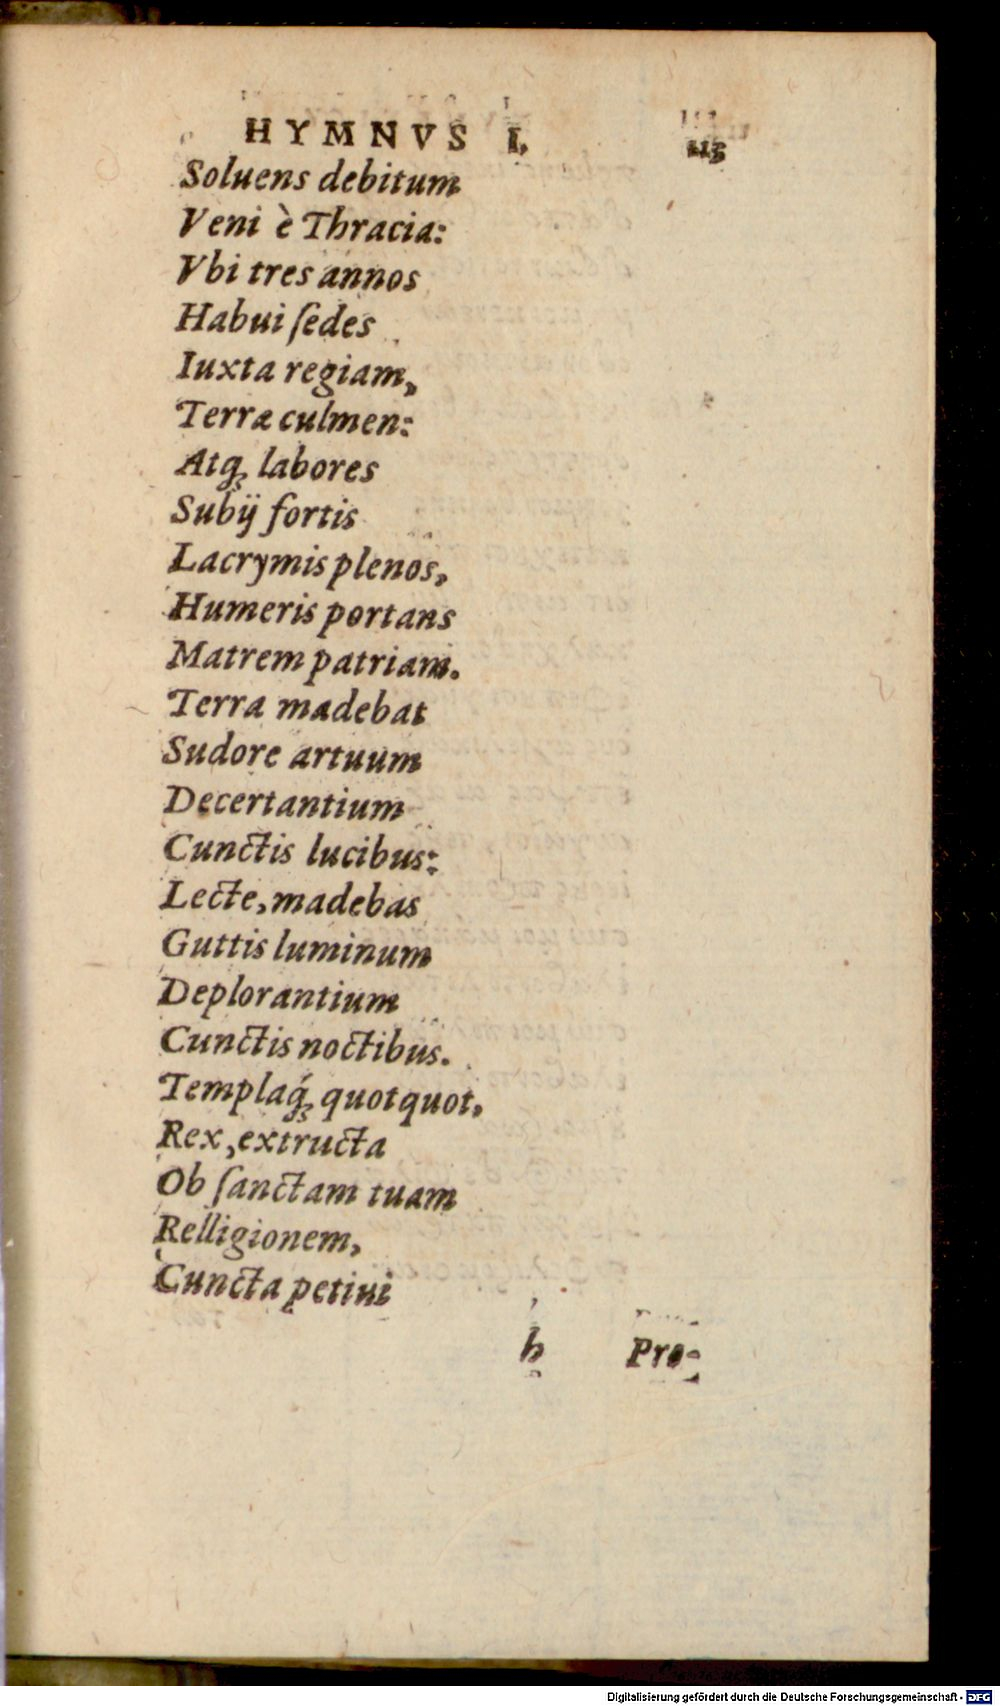 HYMNVS I. 113
Soluens debitum
Veni è Thracia:
Vbi tres annos
Habui ſedes
Iuxta regiam,
Terræ culmen:
Atq́ꝫ labores
Subij fortis
Lacrymis plenos,
Humeris portans
Matrem patriam.
Terra madebat
Sudore artuum
Decertantium
Cunctis lucibus:
Lecte, madebas
Guttis luminum
Deplorantium
Cunctis noctibus.
Templaq́ꝫ quotquot,
Rex, extructa
Ob ſanctam tuam
Relligionem,
Cuncta petiui
h Pro-
Digitalisierung gefördert durch die Deutsche Forschungsgemeinschaft - DFG